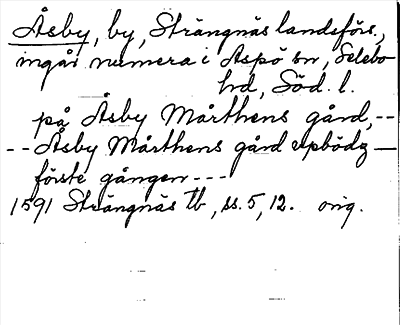 Åsby, by, Strängnäs landsförs.,
ingår numera i Aspö sn, Selebo
hd, Söd. l.
på Åsby Mårthens gård,--
--Åsby Mårthens gård upbödz —
förste gången---
1591 Strängnäs tb, ss. 5, 12. orig.